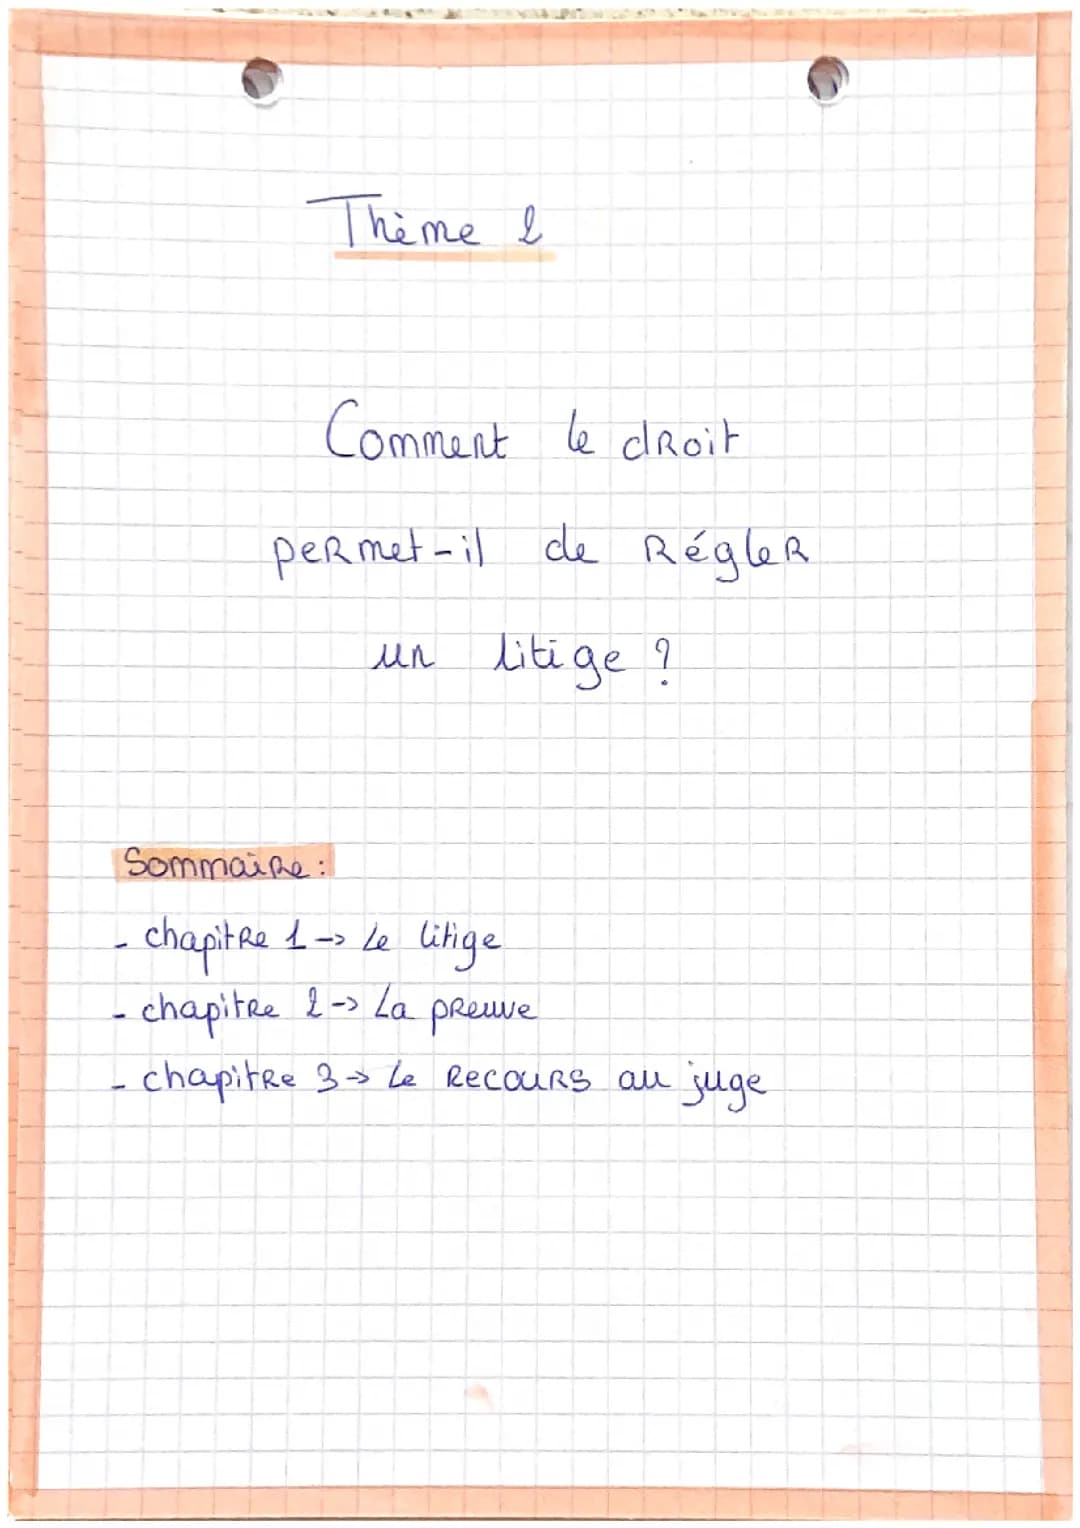 Thème 2
Comment le droit
permet-il de Régler
un litige ?
Sommaire :
- chapitre 1 -> Le litige
- chapitre 2 -> La preuve
- chapitre 3 -> Le Recours au juge